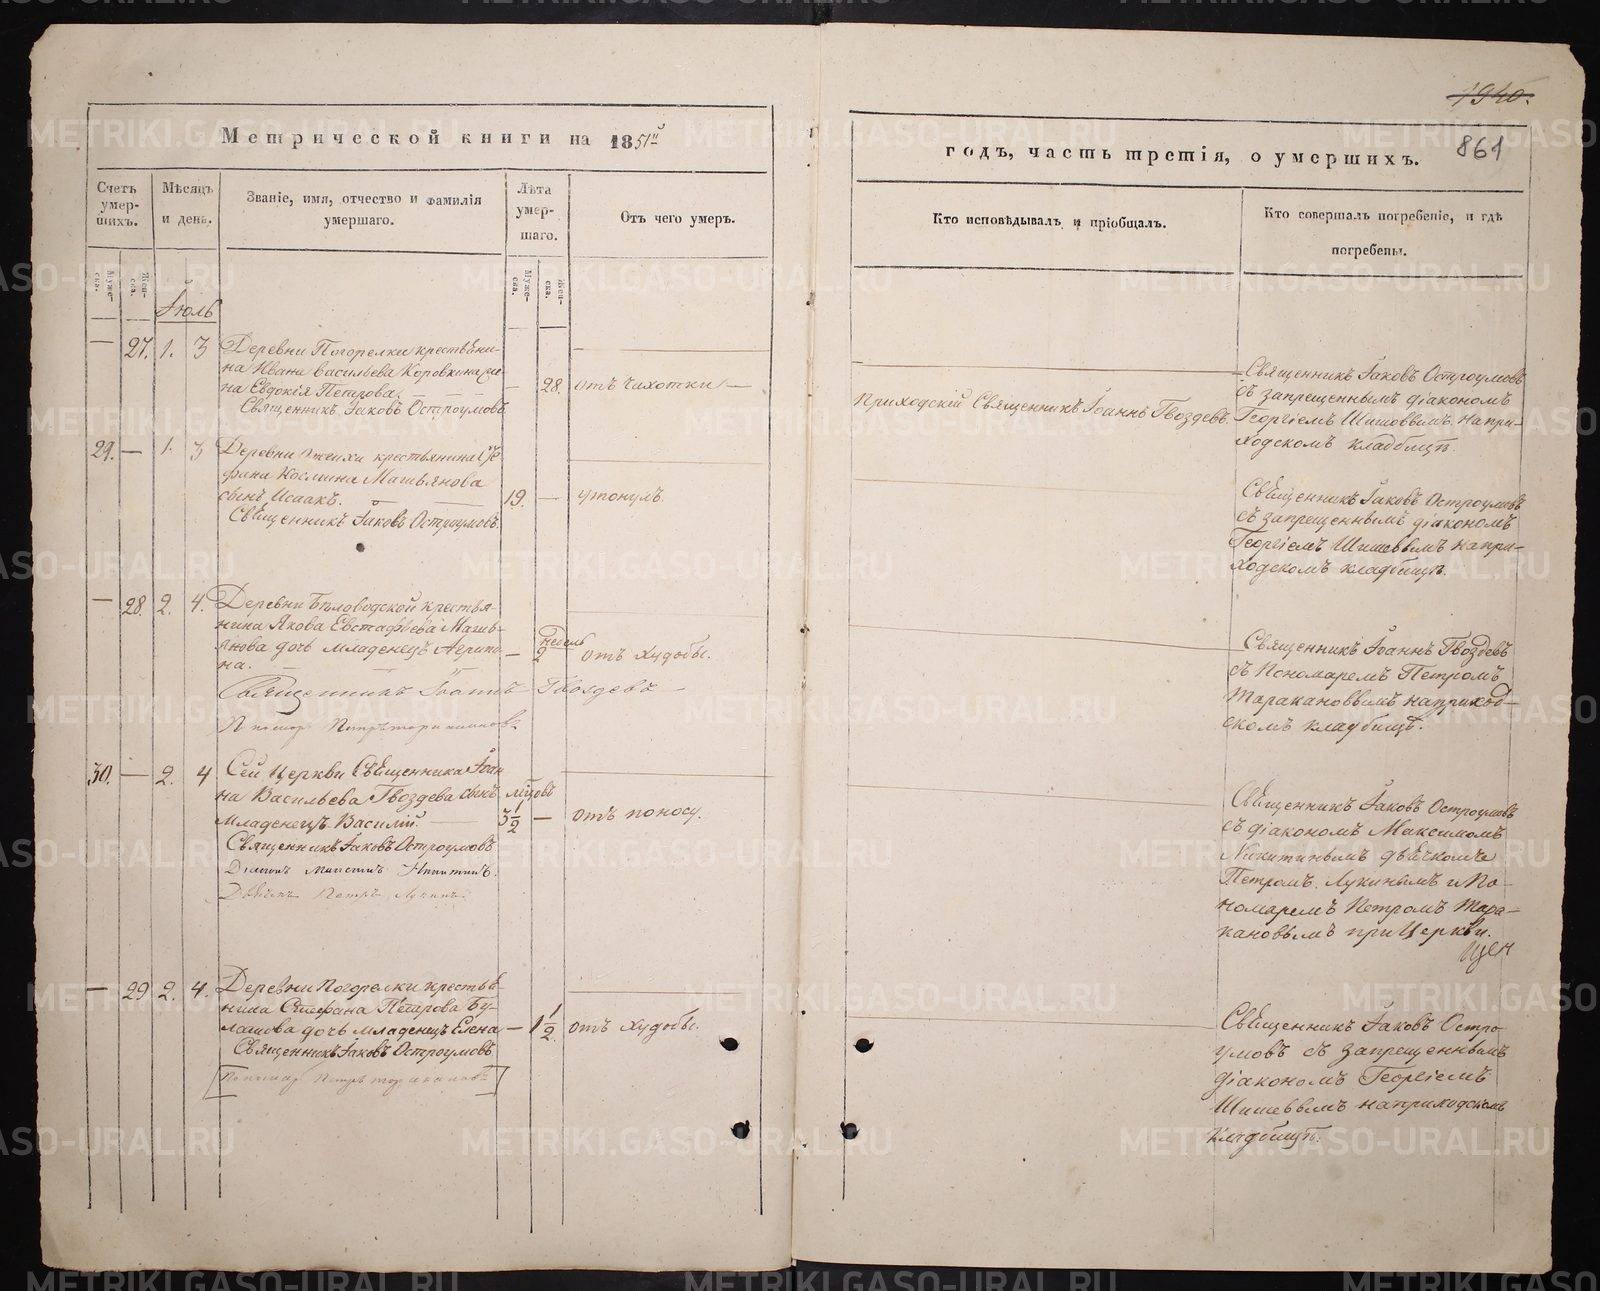 Метрической книги на 1851й
годъ, часть третія, о умершихъ.
1940.
861
Счетъ умер-шихъ.
Мѣсяцъ и день.
Званіе, имя, отчество и фамилія умершаго.
Лѣта умер-шаго.
Отъ чего умеръ.
Кто исповѣдывалъ и пріобщалъ.
Кто совершалъ погребеніе, и гдѣ погребены.
Муже-ска.
Жен-ска.
Муже-ска.
Жен-ска.
Іюль
— 27. 1. 3
Деревни Погорелки крестьяни-
на Ивана Васильева Коровкина же-
на Евдокія Петрова.
Священникъ Іаковъ Остроумовъ.
— 28. отъ чахотки —
Приходскій Священникъ Іоаннъ Гвоздевъ.
Священникъ Іаковъ Остроумовъ
съ запрещеннымъ діакономъ
Георгіемъ Шишовымъ на при-
ходскомъ кладбищѣ.
29. — 1. 3
Деревни крестьянина Сте-
фана Космина Магивянова
сынъ Исаакъ.
Священникъ Іаковъ Остроумовъ.
19. — утонулъ.
Священникъ Іаковъ Остроумовъ
съ запрещеннымъ діакономъ
Георгіемъ Шишевымъ на при-
ходскомъ кладбищѣ.
— 28 2. 4.
Деревни Беловодской крестья-
нина Якова Евстафьева Магив-
янова дочь младенецъ Агрипи-
на.
Священникъ Іоаннъ Гвоздевъ
Пономарь Петръ Таракановъ
— недель 2 отъ худобы.
Священникъ Іоаннъ Гвоздевъ
съ Пономаремъ Петромъ
Таракановымъ на приход-
скомъ кладбищѣ.
30. — 2. 4
Сей Церкви Священника Іоан-
на Васильева Гвоздева сынъ
младенецъ Василій.
Священникъ Іаковъ Остроумовъ
Діаконъ Максимъ Никитинъ.
Дьячекъ Петръ Лукинъ.
мцовъ 3 1/2 — отъ поносу.
Священникъ Іаковъ Остроумовъ
съ діакономъ Максимомъ
Никитинымъ дьячкомъ
Петромъ Лукинымъ и По-
номаремъ Петромъ Тара-
кановымъ при Церкви.
— 29 2. 4.
Деревни Погорелки крестья-
нина Стефана Петрова Бу-
лашова дочь младенецъ Елена
Священникъ Іаковъ Остроумовъ
Пономарь Петръ Таракановъ
— 1 1/2. отъ худобы.
Священникъ Іаковъ Остро-
умовъ съ запрещеннымъ
діакономъ Георгіемъ
Шишевымъ на приходскомъ
кладбищѣ.
METRIKI.GASO-URAL.RU